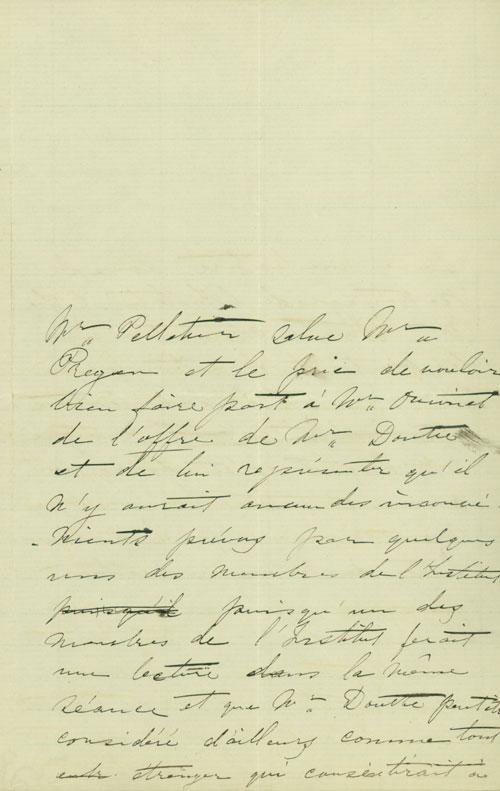 Mr. Pelletier salue Mr.
et le prie de vouloir
bien faire part à Mr.
de l'offre de Mr. Doutre
et de lui représenter qu'il
n'y aurait aucun des inconvé-
-nients prévus par quelques
uns des membres de l'Institut
puisqu'il puisqu'un des
membres de l'Institut ferait
une lecture dans la même
séance et que Mr. Doutre peut être
considéré d'ailleurs comme tout
autre étranger qui consentirait à